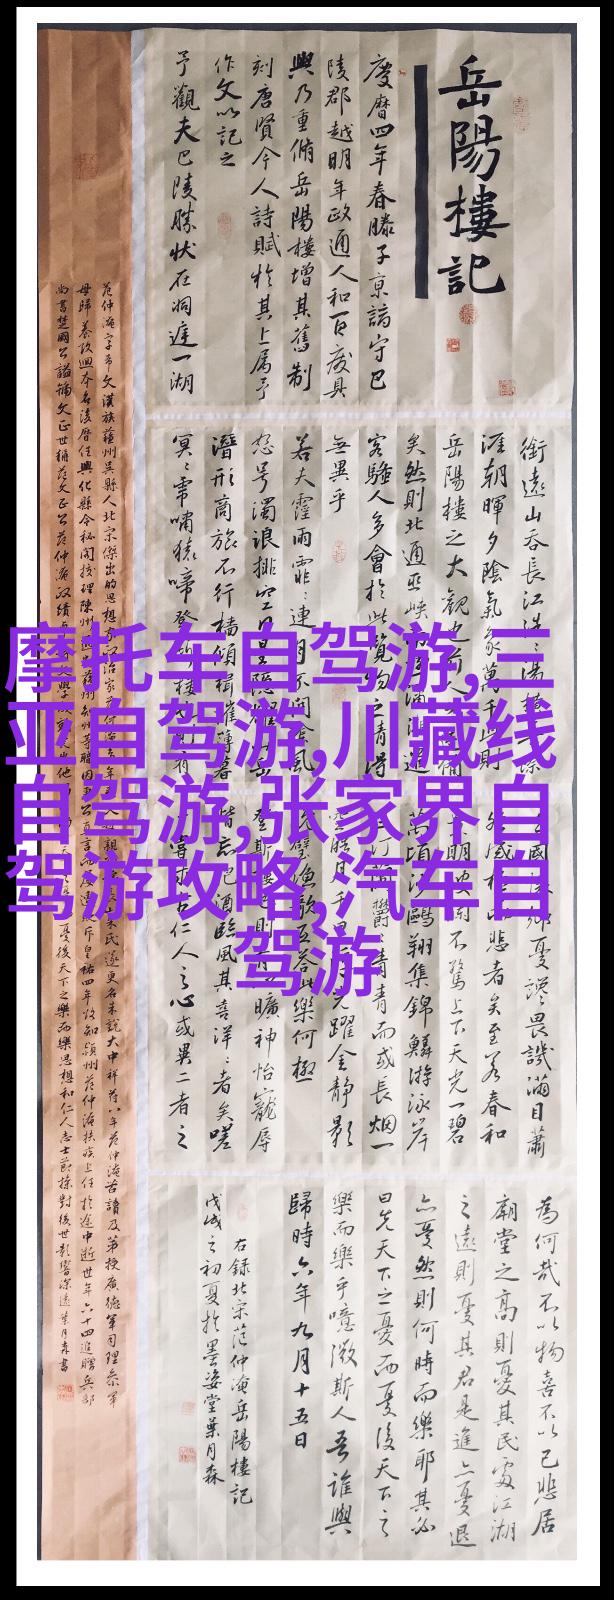 岳陽樓記
慶曆四年春滕子京謫守巴
陵郡越明年政通人和百廢具
興乃重脩岳陽樓增其舊制
刻唐賢今人詩賦於其上屬予
作文以記之
予觀夫巴陵勝狀在洞庭一湖
銜遠山吞長江浩浩湯
涯朝暉夕陰氣象萬千此則
岳陽樓之大觀也前人備
矣然則北通巫峽瀟湘遷
客騷人多會於此覽物之情得
無異乎
若夫霪雨霏霏連月不開陰風
怒号濁浪排空日星隱耀山岳
潛形商旅不行檣傾楫摧薄暮
冥冥虎嘯猿啼登斯樓也則有
國鄉憂讒畏譏滿目蕭
感極悲者矣至若春和
明波瀾不驚上下天光一碧
萬頃沙鷗翔集錦鱗游泳岸
汀蘭欝青青而或長烟一
空皓月千里浮光躍金靜影
璧漁歌互答此樂何極
登斯樓也則有曠神怡寵辱
皆忘把酒臨風其喜洋洋者矣嗟
嘗求古仁人之心或異二者之
為何哉不以物喜不以己悲居
廟堂之高則憂其民處江湖
之遠則憂其君是進亦憂退
亦憂然則何時而樂耶其必
曰先天下之憂而憂後天下之
樂而樂乎噫微斯人吾誰與
歸時六年九月十五日
右錄北宋范仲淹岳陽樓記
戊戌之初夏於墨姿堂葉月森
范仲淹字希文漢族蘇州吳縣人北宋傑出的思想家政治家
摩托车自驾游,三
亚自驾游,川藏线
自驾游,张家界自
驾游攻略,汽车自
驾游